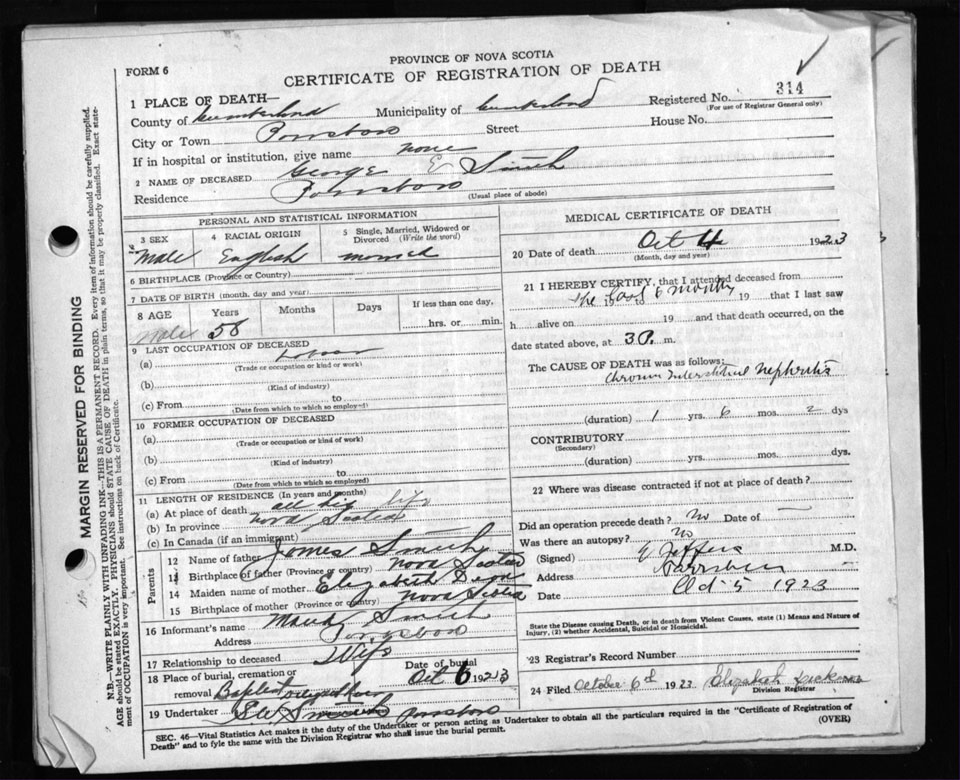 PROVINCE OF NOVA SCOTIA
FORM 6
CERTIFICATE OF REGISTRATION OF DEATH
1 PLACE OF DEATH—
Registered No. 314
(For use of Registrar General only)
County of Cumberland Municipality of Cumberland
City or Town Parrsboro Street House No.
If in hospital or institution, give name none
2 NAME OF DECEASED George E Smith
Residence Parrsboro
(Usual place of abode)
PERSONAL AND STATISTICAL INFORMATION
3 SEX 4 RACIAL ORIGIN 5 Single, Married, Widowed or Divorced (Write the word)
Male English married
6 BIRTHPLACE (Province or Country)
7 DATE OF BIRTH (month, day and year)
8 AGE Years Months Days If less than one day,
Male 58 hrs. or min.
9 LAST OCCUPATION OF DECEASED
(a) Labour
(Trade or occupation or kind of work)
(b)
(Kind of industry)
(c) From to
(Date from which to which so employed)
10 FORMER OCCUPATION OF DECEASED
(a)
(Trade or occupation or kind of work)
(b)
(Kind of industry)
(c) From to
(Date from which to which so employed)
11 LENGTH OF RESIDENCE (In years and months)
(a) At place of death all his life
(b) In province Nova Scotia
(c) In Canada (if an immigrant)
Parents
12 Name of father James Smith
13 Birthplace of father (Province or country) Nova Scotia
14 Maiden name of mother Elizabeth
15 Birthplace of mother (Province or country) Nova Scotia
16 Informant's name Smith
Address Parrsboro
17 Relationship to deceased Wife
18 Place of burial, cremation or removal Baptist Date of burial Oct 6 1923
19 Undertaker Parrsboro
MEDICAL CERTIFICATE OF DEATH
20 Date of death Oct 4 1923
(Month, day and year)
21 I HEREBY CERTIFY, that I attended deceased from
the last 6 months 19 to 19 that I last saw
h alive on 19 and that death occurred, on the
date stated above, at 3 P. m.
The CAUSE OF DEATH was as follows:
Chronic Interstitial Nephritis
(duration) 1 yrs. 6 mos. 2 dys
CONTRIBUTORY
(Secondary)
(duration) yrs. mos. dys.
22 Where was disease contracted if not at place of death?
Did an operation precede death? No Date of —
Was there an autopsy? No
(Signed) E Jeffers M.D.
Address Parrsboro
Date Oct 5 1923
State the Disease causing Death, or in death from Violent Causes, state (1) Means and Nature of
Injury, (2) whether Accidental, Suicidal or Homicidal.
23 Registrar's Record Number
24 Filed October 6th 1923 Elizabeth
Division Registrar
SEC. 46—Vital Statistics Act makes it the duty of the Undertaker or person acting as Undertaker to obtain all the particulars required in the "Certificate of Registration of
Death" and to fyle the same with the Division Registrar who shall issue the burial permit.
(OVER)
MARGIN RESERVED FOR BINDING
N.B.—WRITE PLAINLY WITH UNFADING INK—THIS IS A PERMANENT RECORD. Every item of information should be carefully supplied.
AGE should be stated EXACTLY. PHYSICIANS should STATE CAUSE OF DEATH in plain terms, so that it may be properly classified. Exact state-
ment of OCCUPATION is very important. See instructions on back of Certificate.